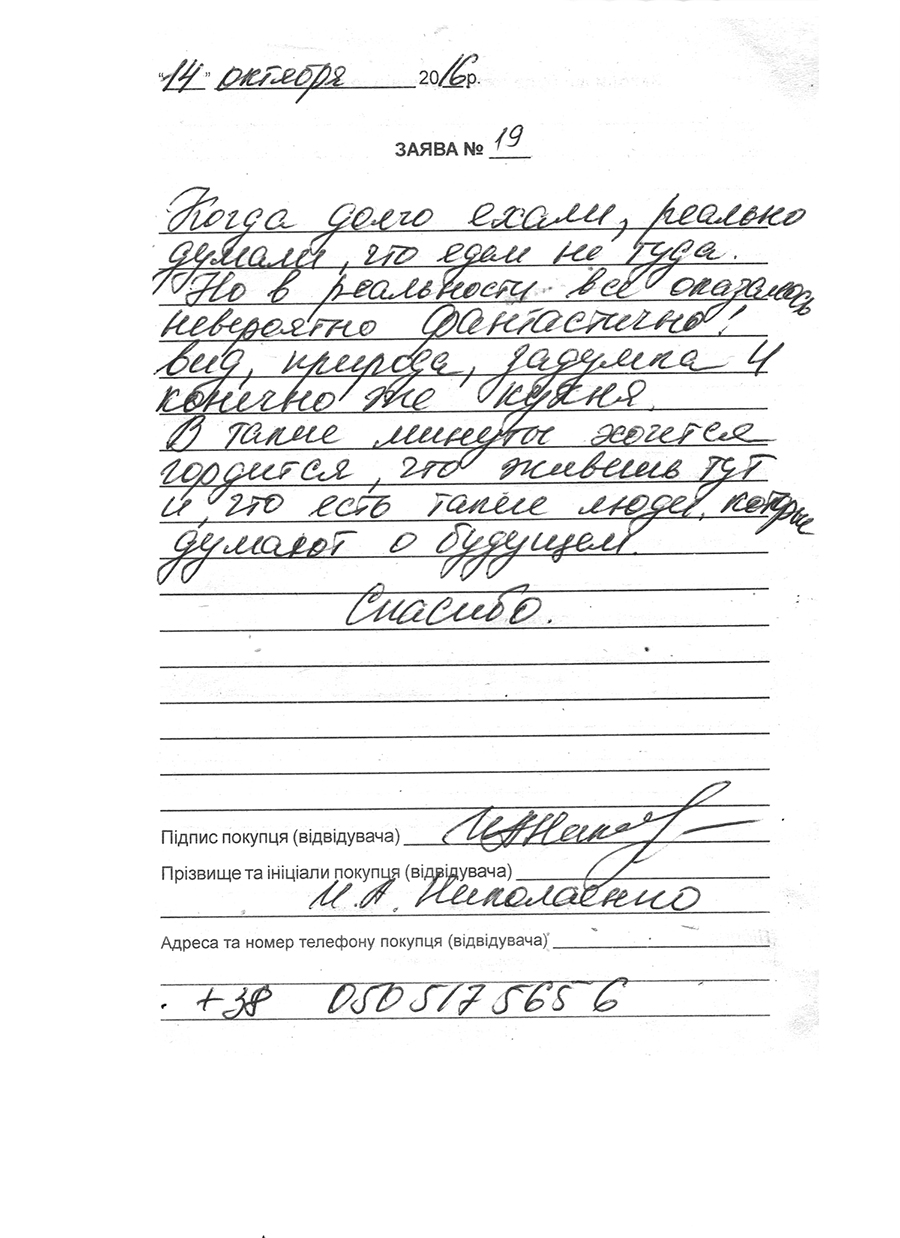 “14” октября 2016р.
ЗАЯВА № 19
Когда долго ехали, реально
думали, что едем не туда.
Но в реальности все оказалось
невероятно фантастично!
вид, природа, задумка и
конечно же кухня.
В такие минуты хочется
гордится, что живешь тут
и, что есть такие люди, которые
думают о будущем.
Спасибо.
Підпис покупця (відвідувача)
Прізвище та ініціали покупця (відвідувача)
И.А. Николаенко
Адреса та номер телефону покупця (відвідувача)
+38 050 517 56 5 6